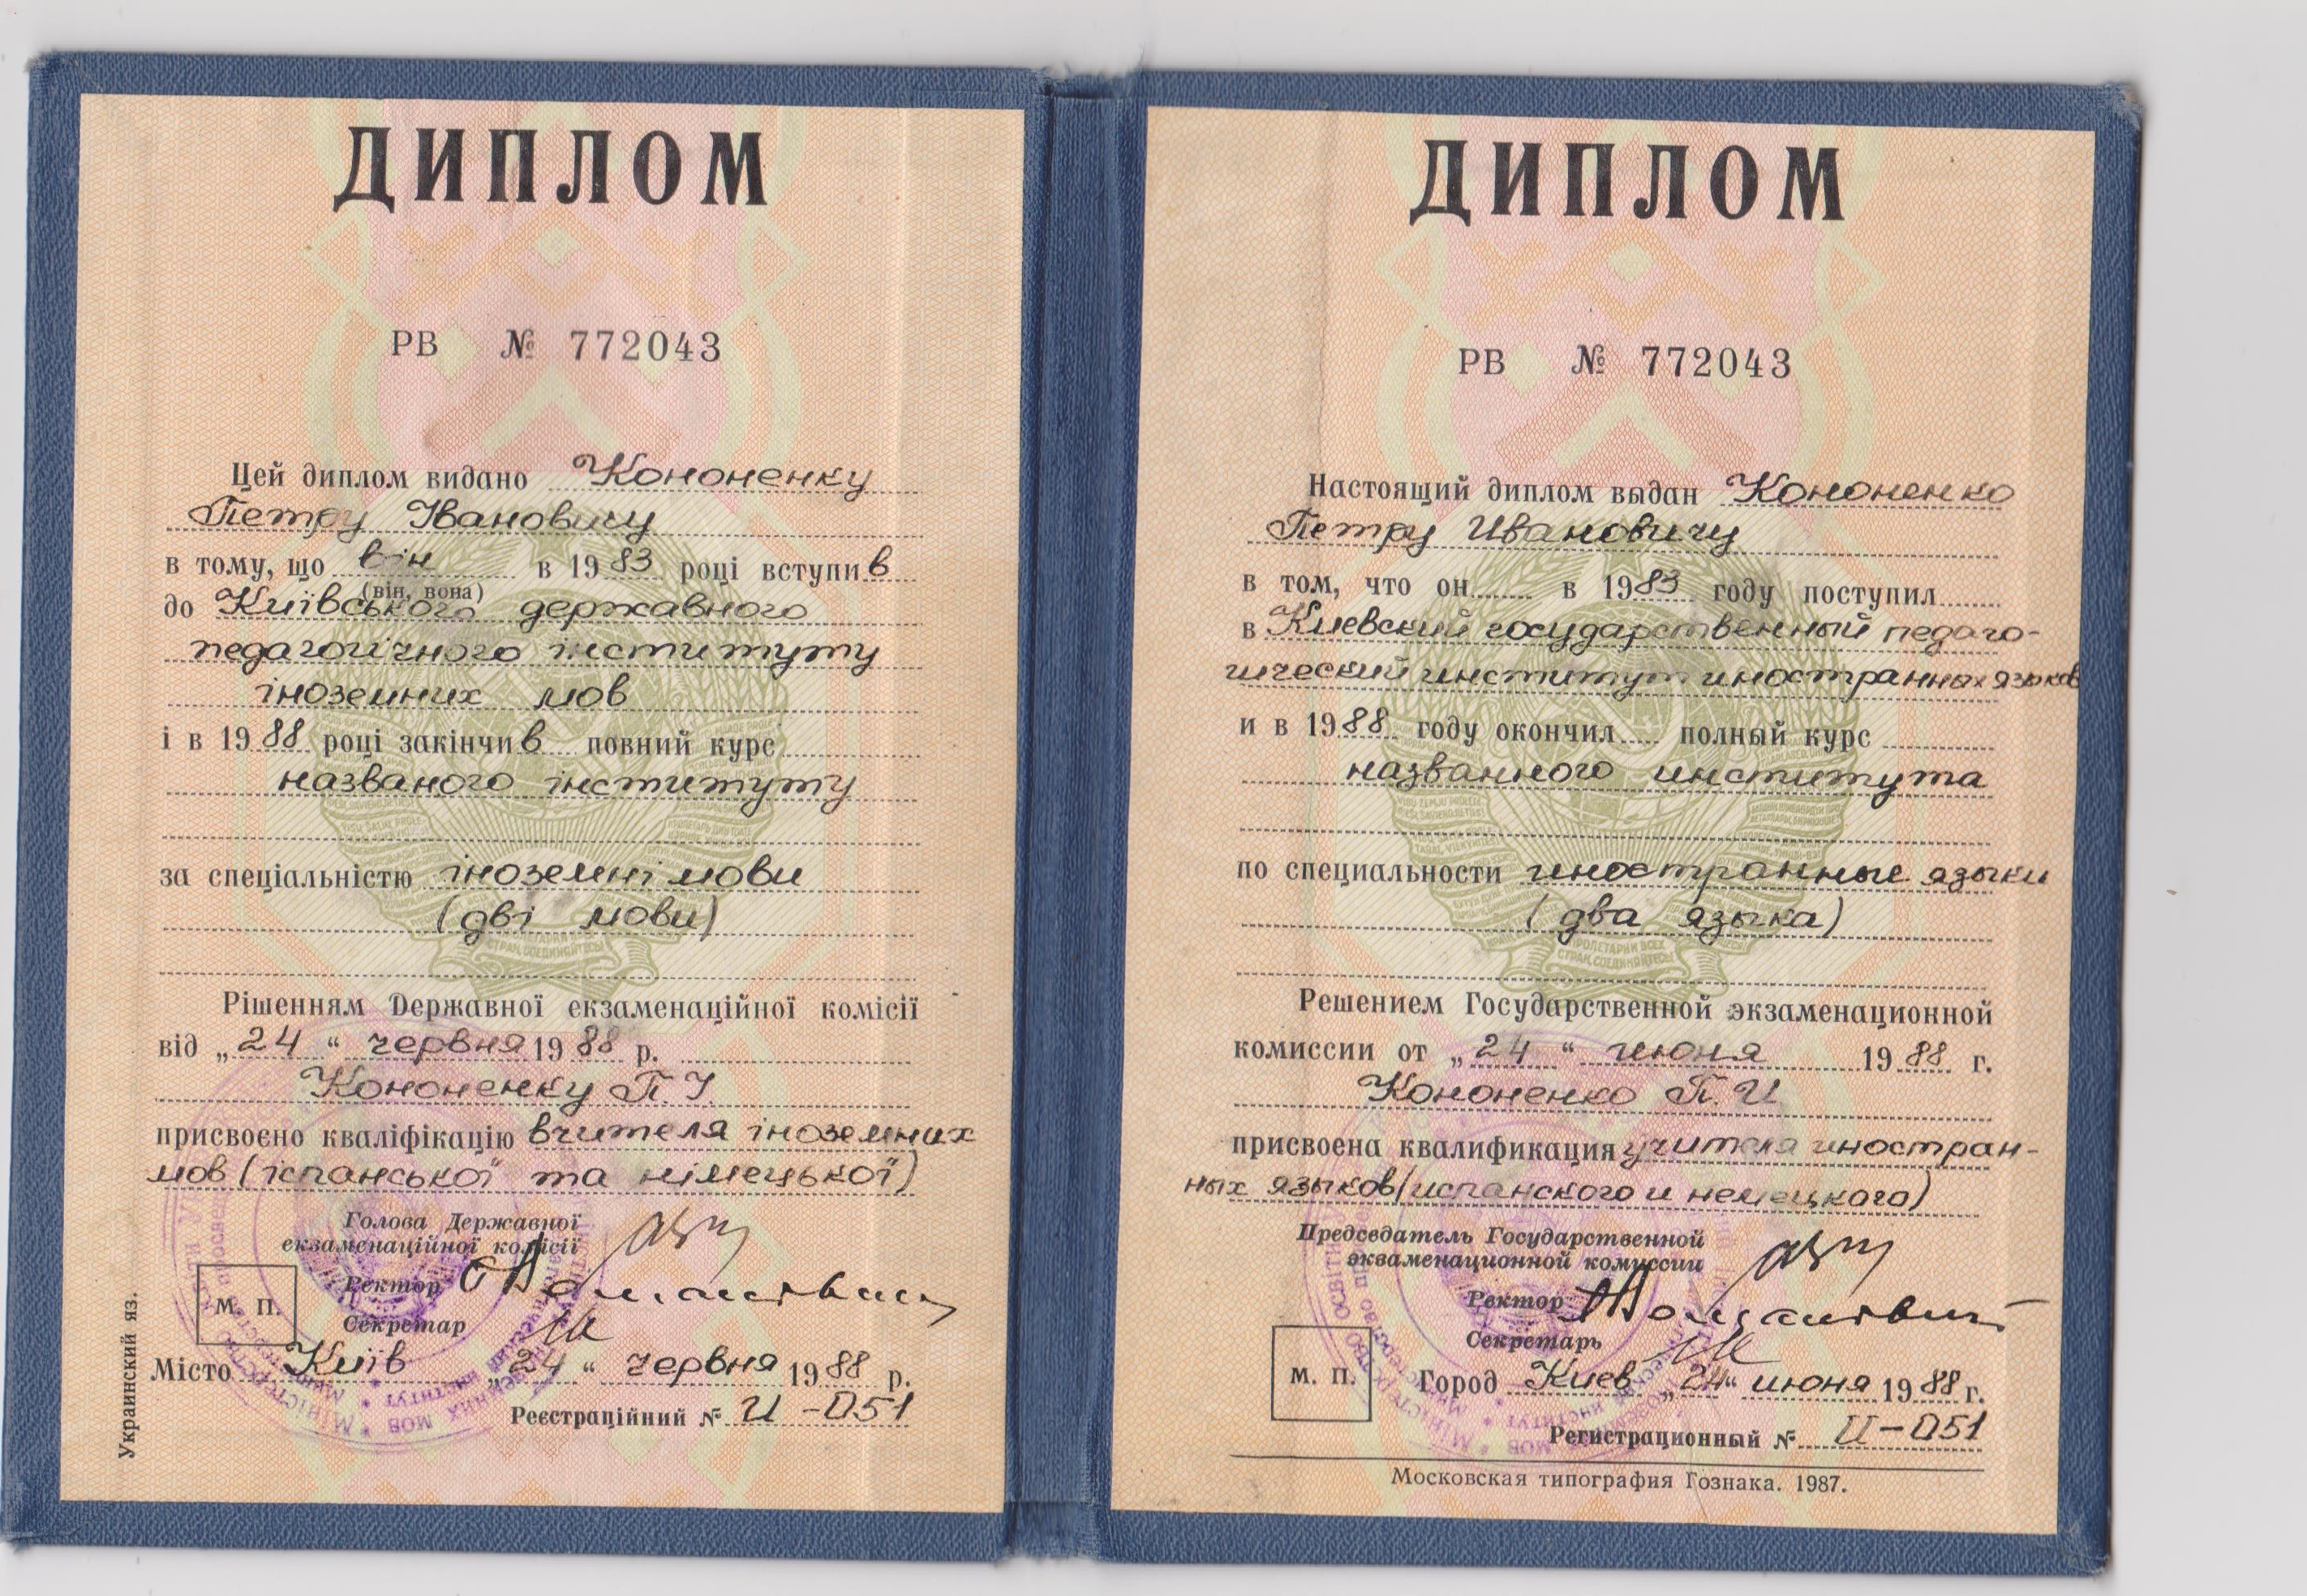 ДИПЛОМ
РВ № 772043
Цей диплом видано Кононенку
Петру Івановичу
в тому, що він в 1983 році вступив
(він, вона)
до Київського державного
педагогічного інституту
іноземних мов
і в 1988 році закінчив повний курс
названого інституту
за спеціальністю іноземні мови
(дві мови)
Рішенням Державної екзаменаційної комісії
від „24“ червня 1988 р.
Кононенку П.І.
присвоєно кваліфікацію вчителя іноземних
мов (іспанської та німецької)
Голова Державної
екзаменаційної комісії
Ректор
М. П.
Секретар
Місто Київ „24“ червня 1988 р.
Реєстраційний № И-051
Украинский яз.
ДИПЛОМ
РВ № 772043
Настоящий диплом выдан Кононенко
Петру Ивановичу
в том, что он в 1983 году поступил
в Киевский государственный педаго-
гический институт иностранных языков
и в 1988 году окончил полный курс
названного института
по специальности иностранные языки
(два языка)
Решением Государственной экзаменационной
комиссии от „24“ июня 1988 г.
Кононенко П.И
присвоена квалификация учителя иностран-
ных языков (испанского и немецкого)
Председатель Государственной
экзаменационной комиссии
Ректор
Секретарь
М. П.
Город Киев „24“ июня 1988 г.
Регистрационный № И-051
Московская типография Гознака. 1987.